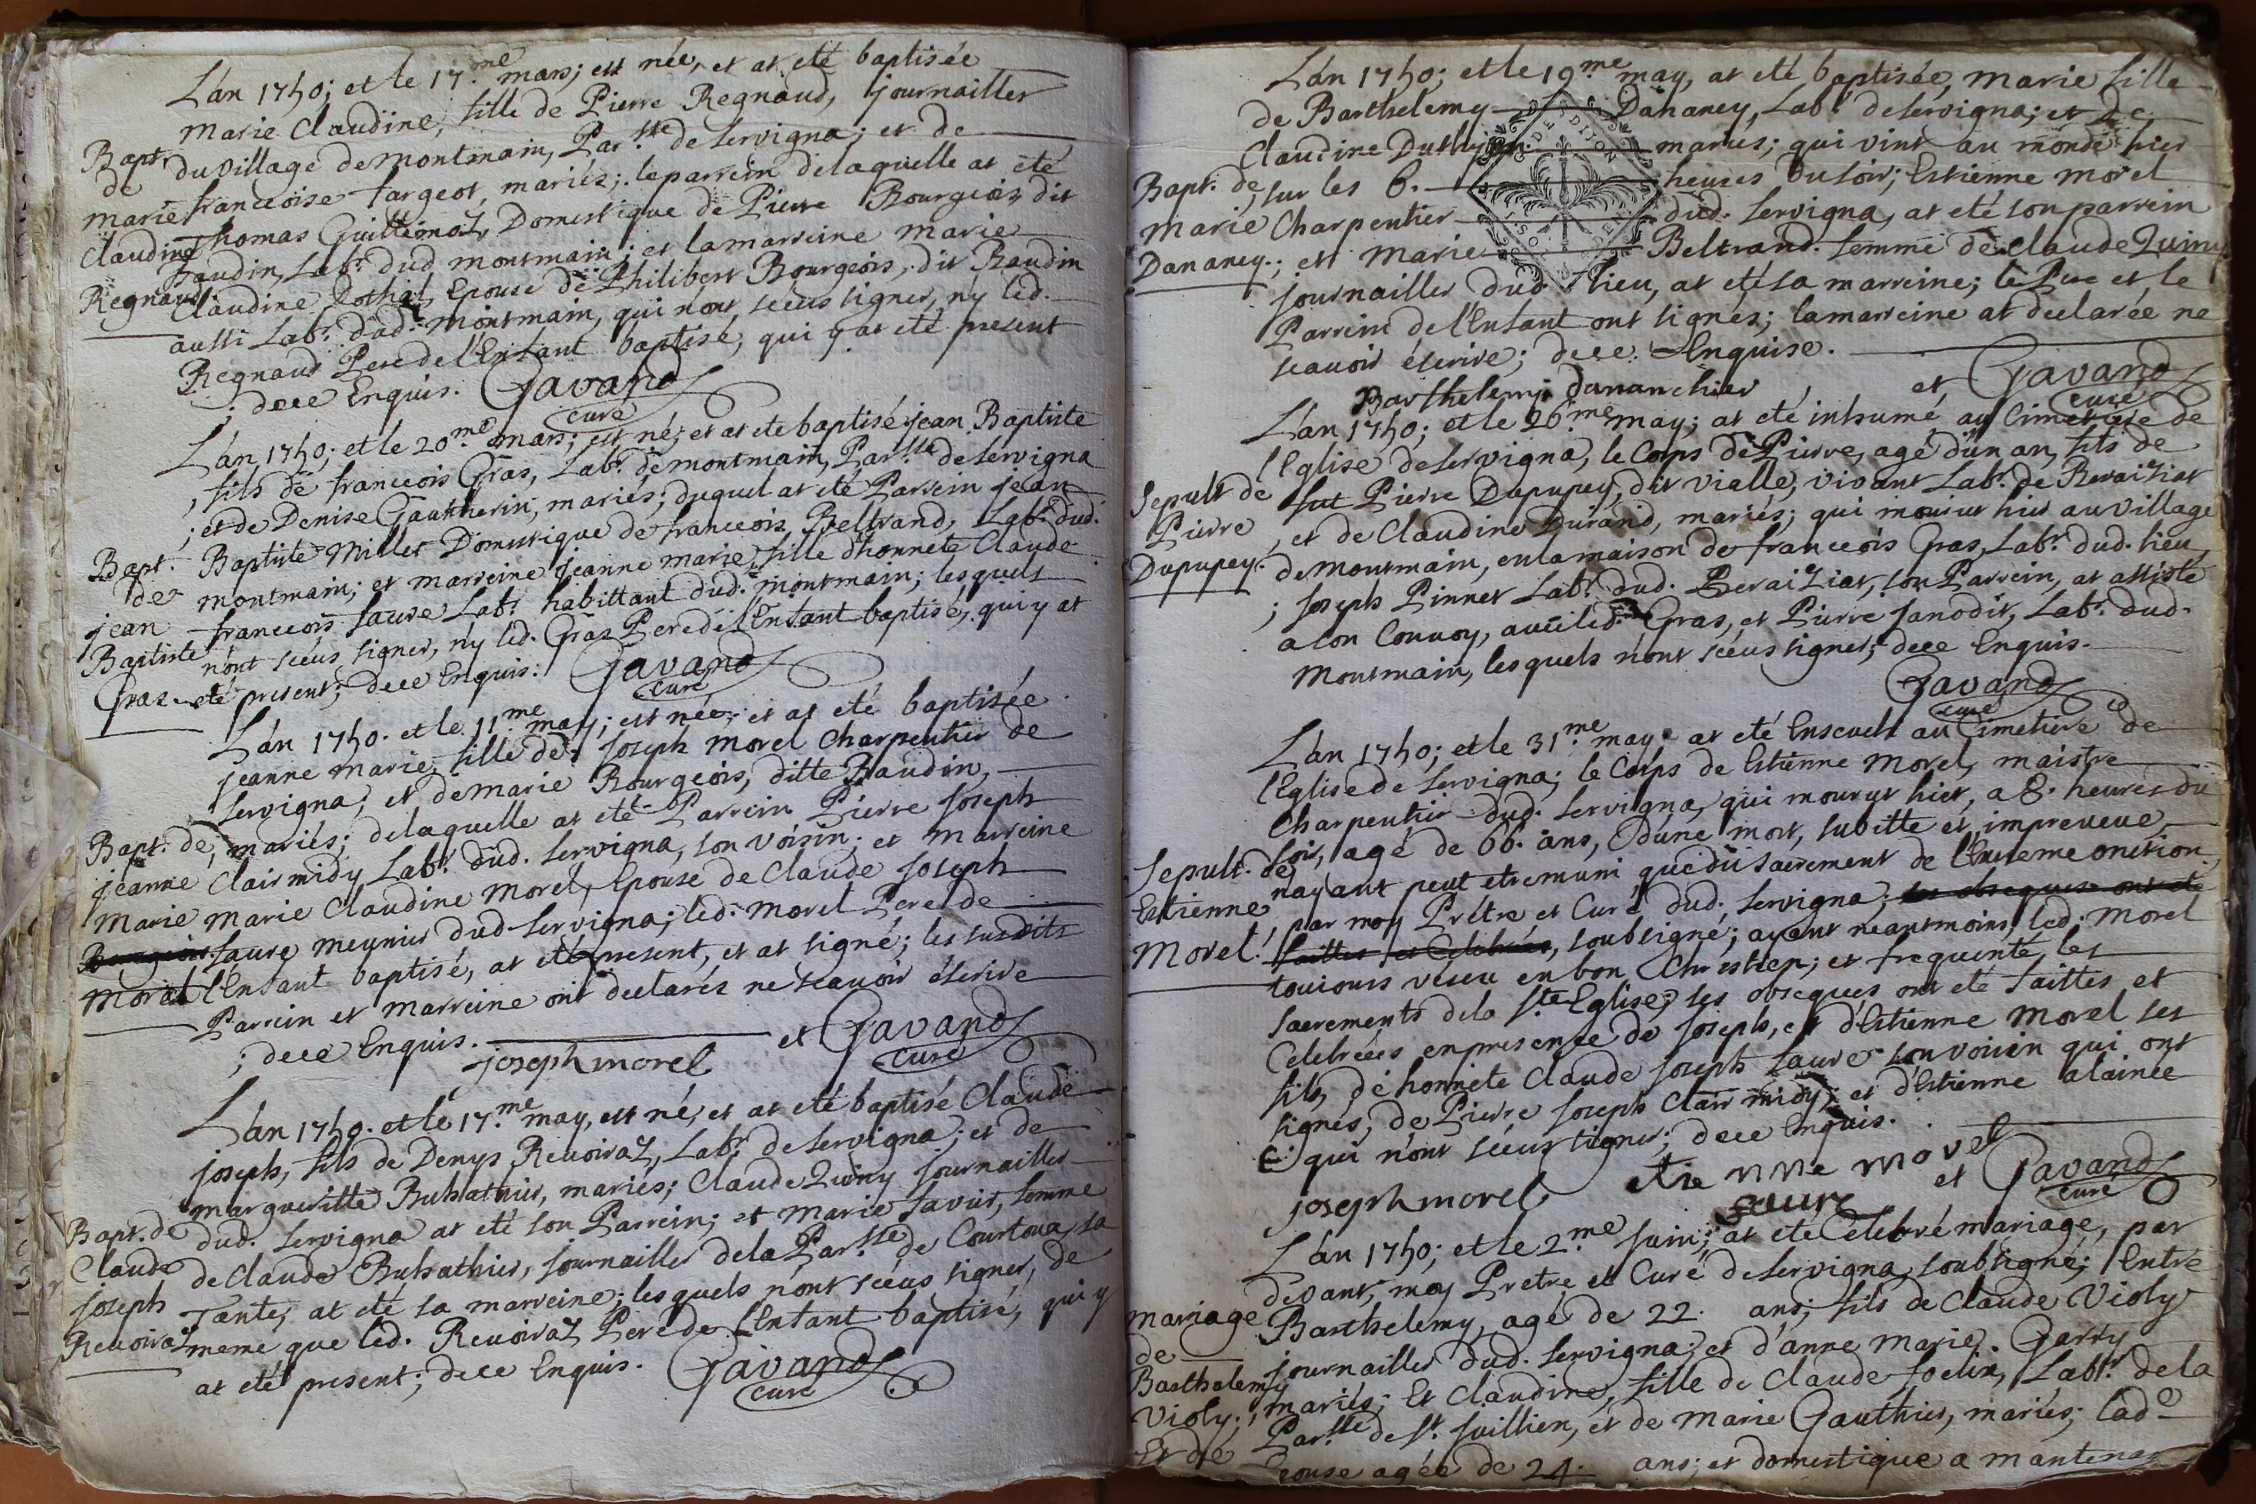 L'an 1750; et le 17.me mars; est née, et at eté baptisée
marie Claudine, fille de Pierre Regnaud, journallier
Bapt.
du village de montmain, Par.sse de Servigna; et de
de
francoise fargeot, mariés; le parrein de laquelle at eté
marie
Thomas Guillemoz, Domestique de Pierre Bourgeois dit
Claudine
Baudin, Lab.r dud montmain; et la marreine marie
Regnaud
Claudine Epouse de Philibert Bourgeois, dit Baudin
aussi Lab.r dud. montmain, qui n'ont sceus signer, ny led.
Regnaud Pere de l'Enfant baptisé, qui y at eté present
; de ce Enquis. Gavand
curé
L'an 1750; et le 20.me mars; est né; et at eté baptisé jean Baptiste
, fils de francois Gras, Lab.r de montmain, Par.sse de Servigna
; et de Denise Gautherin, mariés; duquel at eté Parrein jean
Bapt.
Baptiste Millet Domestique de francois Beltrand, Lab.r dud.
de
montmain; et marreine jeanne marie, fille d'honnete Claude
jean
francois faure Lab.r habittant dud. montmain; lesquels
Baptiste
n'ont sceus signer, ny led. Gras Pere de l'Enfant baptisé, qui y at
Gras
eté present; de ce Enquis: Gavand
curé
L'an 1750. et le 11.me may; est née, et at eté baptisée
jeanne marie, fille de joseph morel Charpentier de
Servigna; et de marie Bourgeois, ditte Baudin,
Bapt. de
, mariés; de laquelle at eté Parrein Pierre joseph
jeanne
Clairmidy Lab.r dud. Servigna, son voisin; et marreine
marie
marie Claudine morel, Epouse de Claude joseph
Bourgeois
faure meunier dud Servigna; led. morel Pere de
Morel
l'Enfant baptisé, at eté present, et at signé; les susdits
Parrein et marreine ont declarés ne scavoir escrire
; de ce Enquis.
joseph morel et Gavand
curé
L'an 1750. et le 17.me may, est né, et at eté baptisé Claude
joseph, fils de Denys Revoiraz, Lab.r de Servigna; et de
margueritte Buhathier, mariés; Claude Quiny journallier
Bapt. de
dud. Servigna at eté son Parrein; et marie favier, femme
Claude
de Claude Buhathier, journallier de la Par.sse de Courtoua, sa
joseph
Tante, at eté sa marreine; lesquels n'ont sceus signer, de
Revoiraz
meme que led. Revoiraz Pere de l'Enfant baptisé, qui y
at eté present; de ce Enquis. Gavand
curé
L'an 1750; et le 19.me may, at eté baptisée, marie fille
de Barthelemy Dananey, Lab.r de Servigna; et de
Claudine mariés; qui vint au monde hier
Bapt. de
, sur les 6. heures du soir; Estienne morel
marie
Charpentier dud. Servigna, at eté son parrein
Dananey.
; et marie Beltrand. femme de Claude Quiny
journallier dud. lieu, at eté sa marreine; le Pere et le
Parrein de l'Enfant ont signés; la marreine at declarée ne
scavoir escrire; de ce Enquise.
Barthelemi dananchier et Gavand
curé
L'an 1750; et le 26.me may; at eté inhumé au Cimetiere de
l'Eglise de Servigna, le Corps de Pierre, agé d'un an, fils de
Sepult de
fut Pierre Dupupey, dit vialle, vivant Lab.r de Beraiziat
Pierre
, et de Claudine Durand, mariés; qui mourut hier au village
Dupupey.
de montmain, en la maison de francois Gras, Lab.r dud. lieu
; joseph Pinner Lab.r dud. Beraiziat, son Parrein, at assisté
a son Convoy, avec led. Gras, et Pierre janodit, Lab.r dud.
Montmain, lesquels n'ont sceus signer; de ce Enquis.
Gavand
curé
L'an 1750; et le 31.me may at eté Enseveli au Cimetiere de
l'Eglise de Servigna; le Corps de Estienne Morel, maistre
Charpentier dud. Servigna, qui mourut hier, a 8. heures du
Sepult. de
soir, agé de 66. ans, d'une mort, subitte et impreveue,
Estienne
nayant peut etre muni que du Sacrement de l'Extreme onction
Morel.
, par moy Prêtre et Curé dud. Servigna, ses obseques ont eté
faittes et Celebrées, soubsigné; ayant neantmoins led. Morel
toujours vescu en bon Chrestien; et frequenté, les
sacrements de la s.te Eglise; ses obseques ont eté faittes et
Celebrées en presence de joseph, et d'Estienne Morel ses
fils, de honnete Claude joseph faure son voisin qui ont
signés, de Pierre joseph Clairmidy, et d'Estienne alainée
qui n'ont sceus signer; de ce Enquis.
joseph morel etienne morel faure et Gavand
curé
L'an 1750; et le 2.me juin; at eté Celebré mariage, par
devant, moy Pretre et Curé de Servigna, soubsigné; Entre
mariage
Barthelemy, agé de 22. ans; fils de Claude Violy
de
journallier dud. Servigna, et d'anne marie Garry
Barthelemy
, mariés; Et Claudine, fille de Claude Joclin, Lab.r de la
Violy.
Par.sse de s.t juillien, et de marie Gauthier, mariés; lad.e
Et de
Epouse agée de 24. ans; et domestique a mantenay